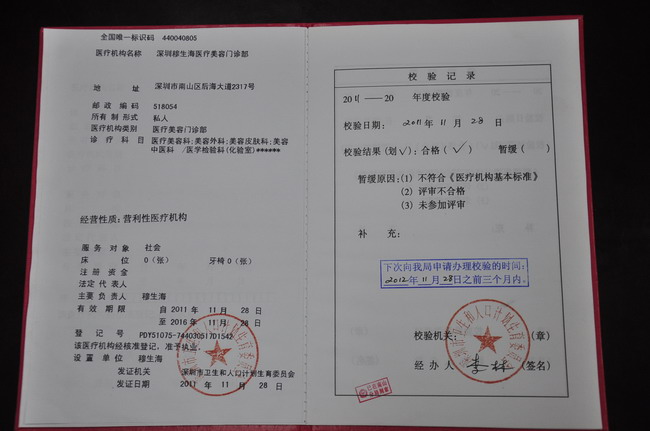 全国唯一标识码 440040805
医疗机构名称 深圳穆生海医疗美容门诊部
地址 深圳市南山区后海大道2317号
邮政编码 518054
所有制形式 私人
医疗机构类别 医疗美容门诊部
诊疗科目 医疗美容科;美容外科;美容皮肤科;美容
中医科 /医学检验科(化验室)******
经营性质: 营利性医疗机构
服务对象 社会
床位 0(张) 牙椅0(张)
注册资金
法定代表人
主要负责人 穆生海
有效期限 自2011年11月28日
至2016年11月28日
登记号 PDY51075-744030517D1542
该医疗机构经核准登记,准予执业。
设置单位 穆生海
发证机关 深圳市卫生和人口计划生育委员会
发证日期 2011年11月28日
校验记录
2011——20 年度校验
校验日期: 2011年11月28日
校验结果(划√): 合格(√) 暂缓( )
暂缓原因: (1) 不符合《医疗机构基本标准》
(2) 评审不合格
(3) 未参加评审
补充:
下次向我局申请办理校验的时间:
2012年11月28日之前三个月内。
校验机关: (章)
深圳市卫生和人口计划生育委员会
经办人 (签名)